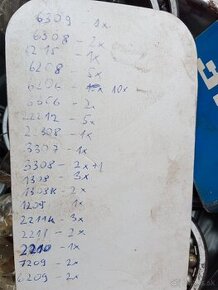 6309 - 1x
6308 - 2x
1215 - 1x
6208 - 5x
6204 - 10x
6056 - 2x
2212 - 5x
2308 - 1x
3307 - 1x
3308 - 2x+1
1308 - 3x
1308K - 2x
1209 - 1x
2211K - 3x
2211 - 2x
2210 - 1x
7209 - 2x
6209 - 2x